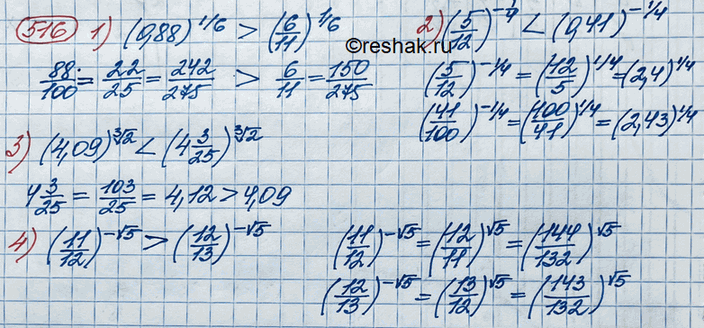 516 1) (0,88)^1/6 > (6/11)^1/6
88/100 = 22/25 = 242/275 > 6/11 = 150/275
©reshak.ru
2) (5/12)^-1/4 < (0,41)^-1/4
(5/12)^-1/4 = (12/5)^1/4 = (2,4)^1/4
(41/100)^-1/4 = (100/41)^1/4 = (2,43)^1/4
3) (4,09)^∛2 < (4 3/25)^∛2
4 3/25 = 103/25 = 4,12 > 4,09
4) (11/12)^-√5 > (12/13)^-√5
(11/12)^-√5 = (12/11)^√5 = (144/132)^√5
(12/13)^-√5 = (13/12)^√5 = (143/132)^√5